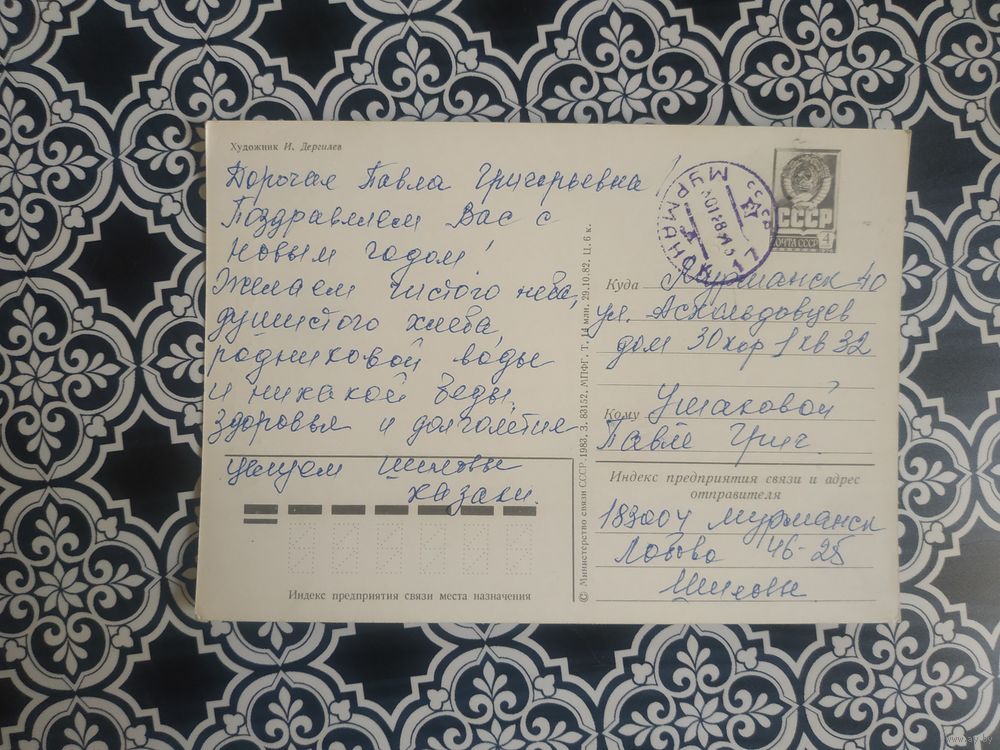 Художник И. Дергилев
Дорогая Павла Григорьевна!
Поздравляем Вас с
Новым годом!
Желаем чистого неба,
душистого хлеба
родниковой воды
и никакой беды,
здоровья и долголетия
целуем Шиловы
казаки.
Индекс предприятия связи места назначения
© Министерство связи СССР. 1983. З. 83152. МПФГ. Т. 14 млн. 29.10.82. Ц. 6 к.
МУРМАНСК
СССР
ПОЧТА СССР 4
Куда Мурманск 40
ул. Аскольдовцев
дом 30 кор 1 кв 32
Кому Ушаковой
Павле Григ
Индекс предприятия связи и адрес
отправителя
183004 Мурманск
Лобова 46-25
Шиловы
www.ay.by